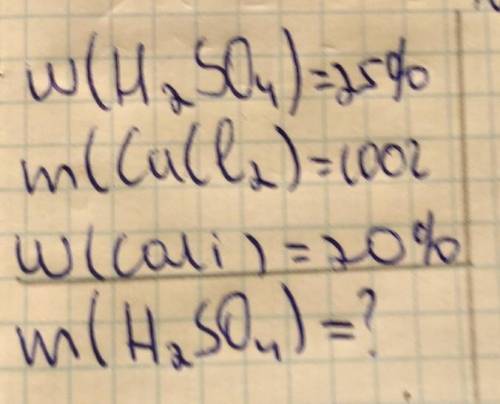 w(H₂SO₄)=25%
m(CaCl₂)=100г
w(CaCl₂)=20%
m(H₂SO₄)=?